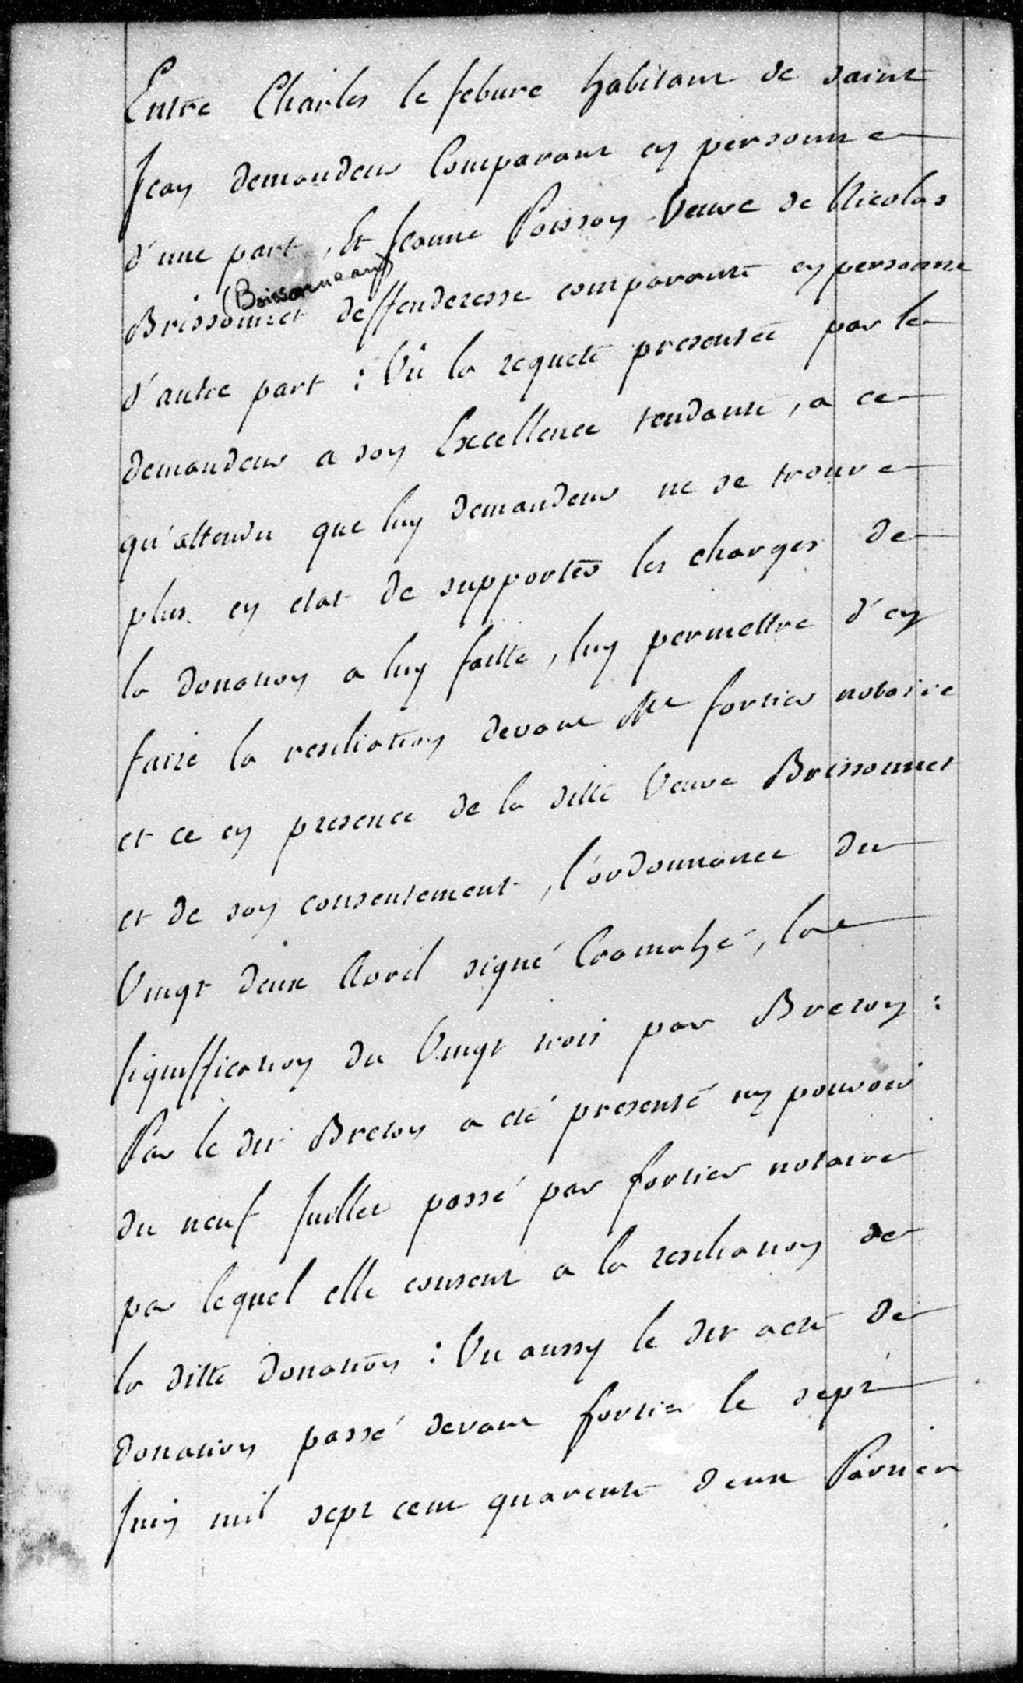 Entre Charles le febure habitant de saint
Jean demandeur Comparant en personne
d'une part, Et Jeanne Poisson Veuve de Nicolas
(Boissonneau)
Brissonnet deffenderesse comparante en personne
d'autre part : Vû la requete presentée par le
demandeur a son Excellence tendante, a ce
qu'attendu que luy demandeur ne se trouve
plus en etat de supporter les charges de
la donation a luy faitte, luy permettre d'en
faire la resiliation devant Me fortier notaire
et ce en presence de la ditte Veuve Brissonnet
et de son consentement, l'ordonnance du
Vingt deux Avril signé Cramahé, la
signiffication du Vingt trois par Breton :
Par le dit Breton a eté presenté un pouvoir
du neuf Juillet passé par fortier notaire
par lequel elle consent a la resiliation de
la ditte donation : Vu aussy le dit acte de
donation passé devant fortier le sept
Juin mil sept cent quarente deux Parties